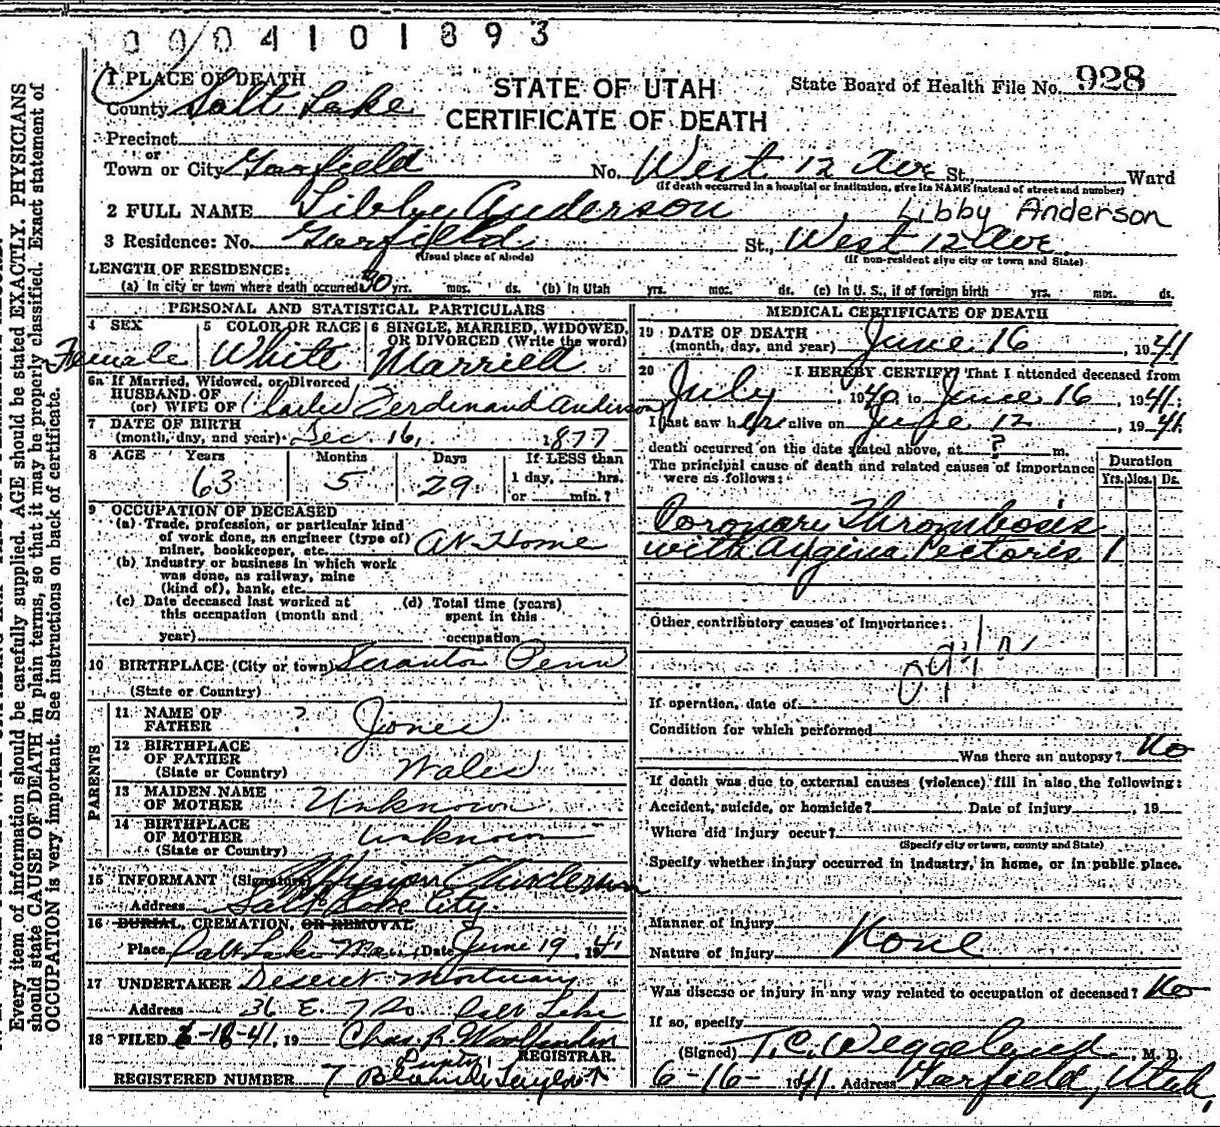 0004101893
1 PLACE OF DEATH
County Salt Lake
STATE OF UTAH
CERTIFICATE OF DEATH
State Board of Health File No. 928
Precinct
or
Town or City Garfield No. West 12 Ave St., Ward
(If death occurred in a hospital or institution, give its NAME instead of street and number)
2 FULL NAME Libby Anderson, Libby Anderson
3 Residence: No. Garfield St., West 12 Ave.
(Usual place of abode) (If non-resident give city or town and State)
LENGTH OF RESIDENCE:
(a) In city or town where death occurred 30 yrs. mos. ds. (b) In Utah yrs. mos. ds. (c) In U. S., if of foreign birth yrs. mos. ds.
PERSONAL AND STATISTICAL PARTICULARS
4 SEX Female
5 COLOR OR RACE White
6 SINGLE, MARRIED, WIDOWED, OR DIVORCED (Write the word) Married
6a If Married, Widowed, or Divorced
HUSBAND OF
(or) WIFE OF Charles Ferdinand Anderson
7 DATE OF BIRTH
(month, day, and year) Dec. 16, 1877
8 AGE Years Months Days If LESS than
63 5 29 1 day, hrs.
or min.?
9 OCCUPATION OF DECEASED
(a) Trade, profession, or particular kind
of work done, as engineer (type of)
miner, bookkeeper, etc. At Home
(b) Industry or business in which work
was done, as railway, mine
(kind of), bank, etc.
(c) Date deceased last worked at
this occupation (month and
year)
(d) Total time (years)
spent in this
occupation
10 BIRTHPLACE (City or town) Scranton Penn
(State or Country)
PARENTS
11 NAME OF
FATHER ? Jones
12 BIRTHPLACE
OF FATHER Wales
(State or Country)
13 MAIDEN NAME
OF MOTHER Unknown
14 BIRTHPLACE
OF MOTHER unknown
(State or Country)
15 INFORMANT (Signature) Anderson
Address Salt Lake City.
16 BURIAL, CREMATION, OR REMOVAL
Place Salt Lake Date June 19, 1941
17 UNDERTAKER Deseret Mortuary
Address 36 E. 7 So. Salt Lake
18 FILED 6-18-41, 19 Chas. R.
REGISTRAR.
REGISTERED NUMBER 7 Taylor
MEDICAL CERTIFICATE OF DEATH
19 DATE OF DEATH
(month, day, and year) June 16, 1941
20 I HEREBY CERTIFY, That I attended deceased from
July, 1940, to June 16, 1941;
I last saw her alive on June 12, 1941
death occurred on the date stated above, at ? m.
The principal cause of death and related causes of importance
were as follows:
Duration
Yrs. Mos. Ds.
Coronary Thrombosis
with Angina Pectoris 1
Other contributory causes of importance:
If operation, date of
Condition for which performed
Was there an autopsy? No
If death was due to external causes (violence) fill in also the following:
Accident, suicide, or homicide? Date of injury, 19
Where did injury occur?
(Specify city or town, county and State)
Specify whether injury occurred in industry, in home, or in public place.
Manner of injury
Nature of injury None
Was disease or injury in any way related to occupation of deceased? No
If so, specify
(Signed) T. C. Weggeland, M. D.
6-16-1941 Address Garfield, Utah,
Every item of information should be carefully supplied. AGE should be stated EXACTLY. PHYSICIANS
should state CAUSE OF DEATH in plain terms, so that it may be properly classified. Exact statement of
OCCUPATION is very important. See instructions on back of certificate.